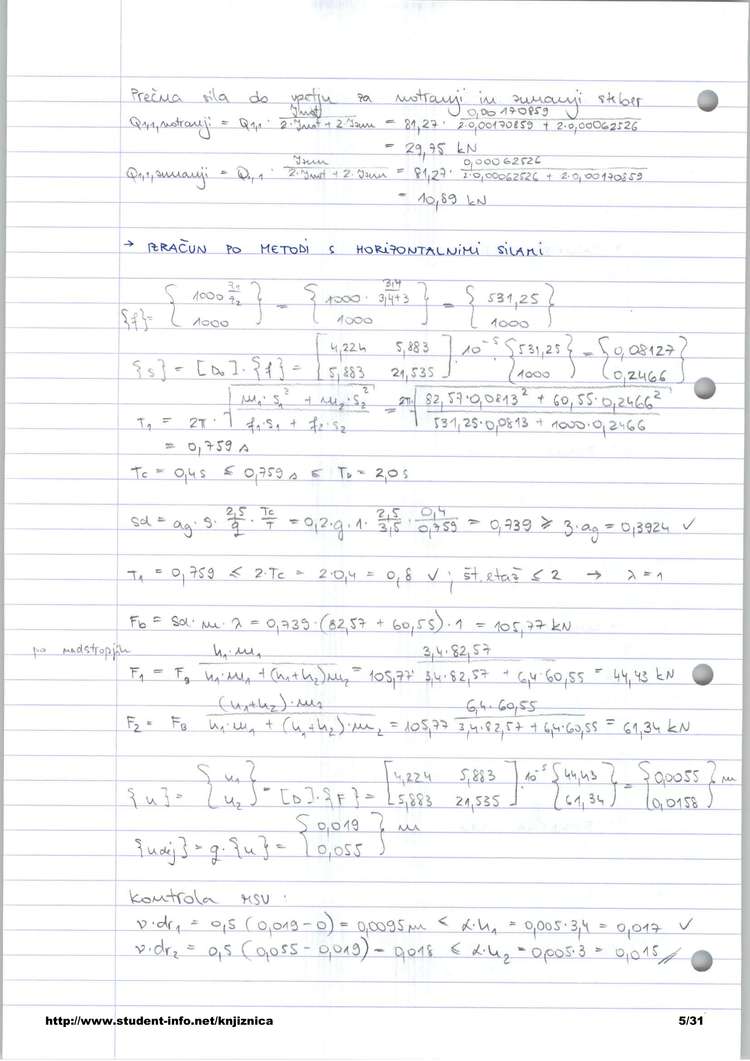 Prečna sila do vpetju za notranji in zunanji steber
Q1,1,notranji = Q1,1 · Inot / (2·Inot + 2·Izun) = 81,27 · 0,00170859 / (2·0,00170859 + 2·0,00062526)
= 29,75 kN
Q1,1,zunanji = Q1,1 · Izun / (2·Inot + 2·Izun) = 81,27 · 0,00062526 / (2·0,00062526 + 2·0,00170859)
= 10,89 kN
→ IZRAČUN PO METODI S HORIZONTALNIMI SILAMI
{f} = {1000 z1/z2 ; 1000} = {1000 · 3,4/(3,4+3) ; 1000} = {531,25 ; 1000}
{s} = [D0]·{f} = [4,224 5,883 ; 5,883 21,535] · 10⁻⁵ {531,25 ; 1000} = {0,08127 ; 0,2466}
T1 = 2π · √((m1·s1² + m2·s2²) / (f1·s1 + f2·s2)) = 2π √((82,57·0,0813² + 60,55·0,2466²) / (531,25·0,0813 + 1000·0,2466))
= 0,759 s
Tc = 0,4s ≤ 0,759 s ≤ TD = 2,0s
Sd = ag · S · 2,5/q · Tc/T = 0,2·g·1 · 2,5/3,5 · 0,4/0,759 = 0,739 ≥ β·ag = 0,3924 ✓
T1 = 0,759 ≤ 2·Tc = 2·0,4 = 0,8 ✓ ; št. etaž ≤ 2 → λ = 1
Fb = Sd · m · λ = 0,739·(82,57 + 60,55)·1 = 105,77 kN
po nadstropjih
F1 = FB h1·m1 / (h1·m1 + (h1+h2)m2) = 105,77 · 3,4·82,57 / (3,4·82,57 + 6,4·60,55) = 44,43 kN
F2 = FB (h1+h2)·m2 / (h1·m1 + (h1+h2)·m2) = 105,77 6,4·60,55 / (3,4·82,57 + 6,4·60,55) = 61,34 kN
{u} = {u1 ; u2} = [D]·{F} = [4,224 5,883 ; 5,883 21,535] · 10⁻⁵ {44,43 ; 61,34} = {0,0055 ; 0,0158} m
{udej} = q·{u} = {0,019 ; 0,055} m
Kontrola MSU:
ν·dr1 = 0,5 (0,019 - 0) = 0,0095 m < α·h1 = 0,005·3,4 = 0,017 ✓
ν·dr2 = 0,5 (0,055 - 0,019) = 0,018 ≤ α·h2 = 0,005·3 = 0,015
http://www.student-info.net/knjiznica 5/31